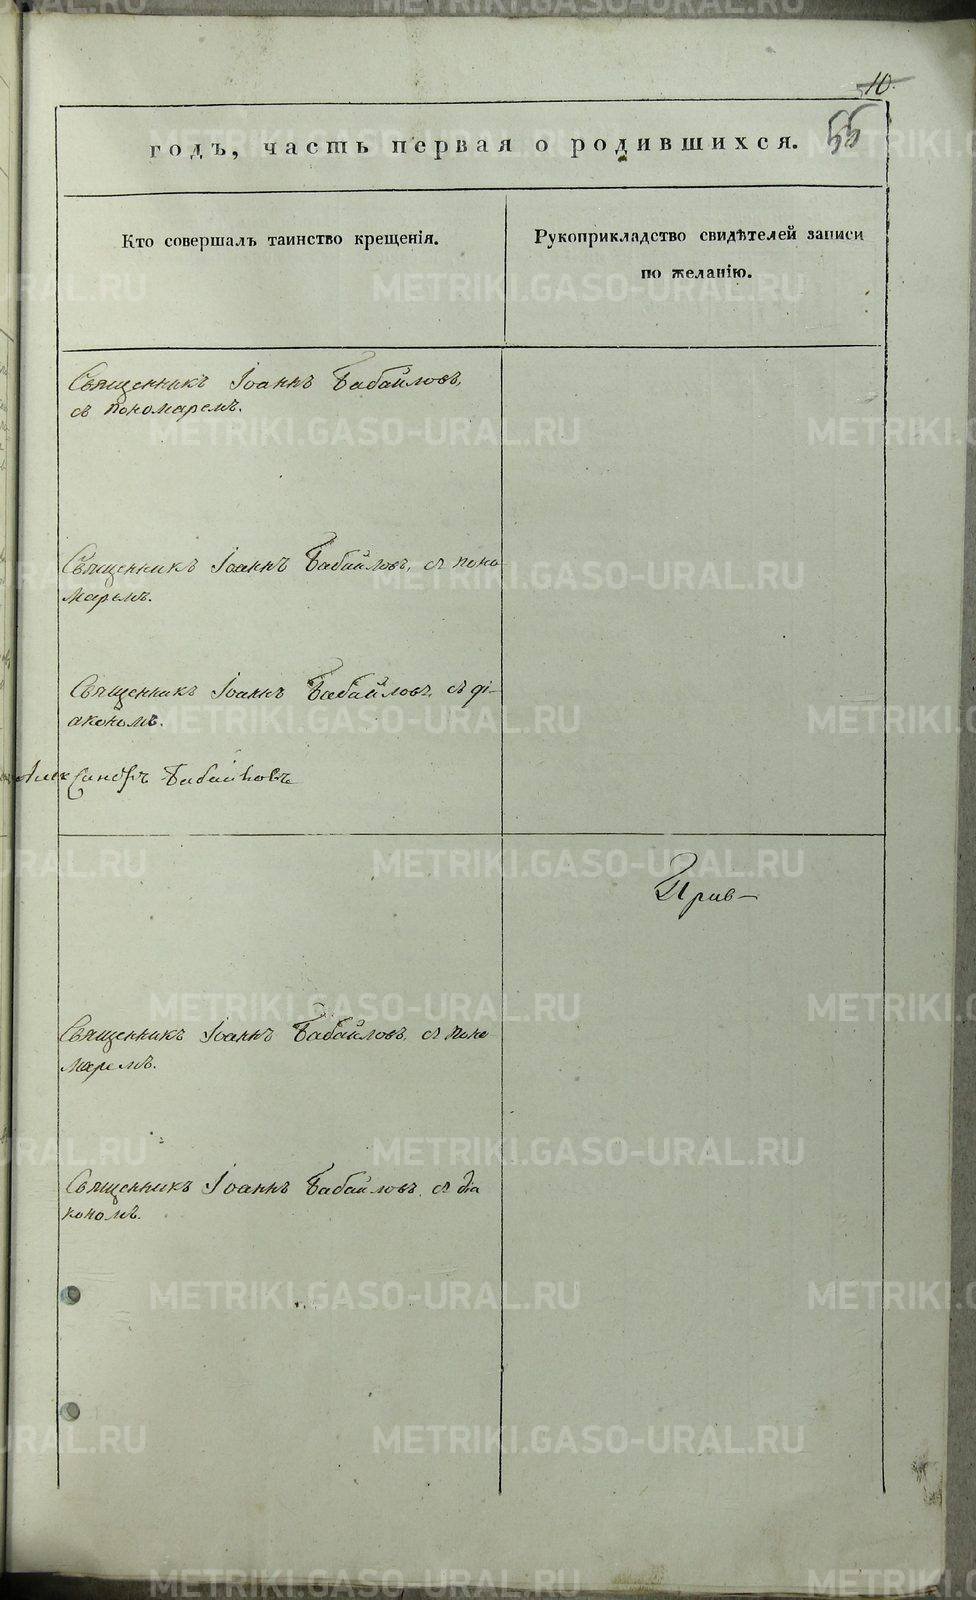 10.
годъ, часть первая о родившихся. 55
Кто совершалъ таинство крещенія.
Рукоприкладство свидѣтелей записи
по желанію.
Священникъ Іоаннъ Бабайловъ,
съ пономаремъ.
Священникъ Іоаннъ Бабайловъ, съ поно
маремъ.
Священникъ Іоаннъ Бабайловъ, съ ді-
акономъ.
Александръ
Священникъ Іоаннъ Бабайловъ, съ поно
маремъ.
Священникъ Іоаннъ Бабайловъ, съ діа
кономъ.
METRIKI.GASO-URAL.RU